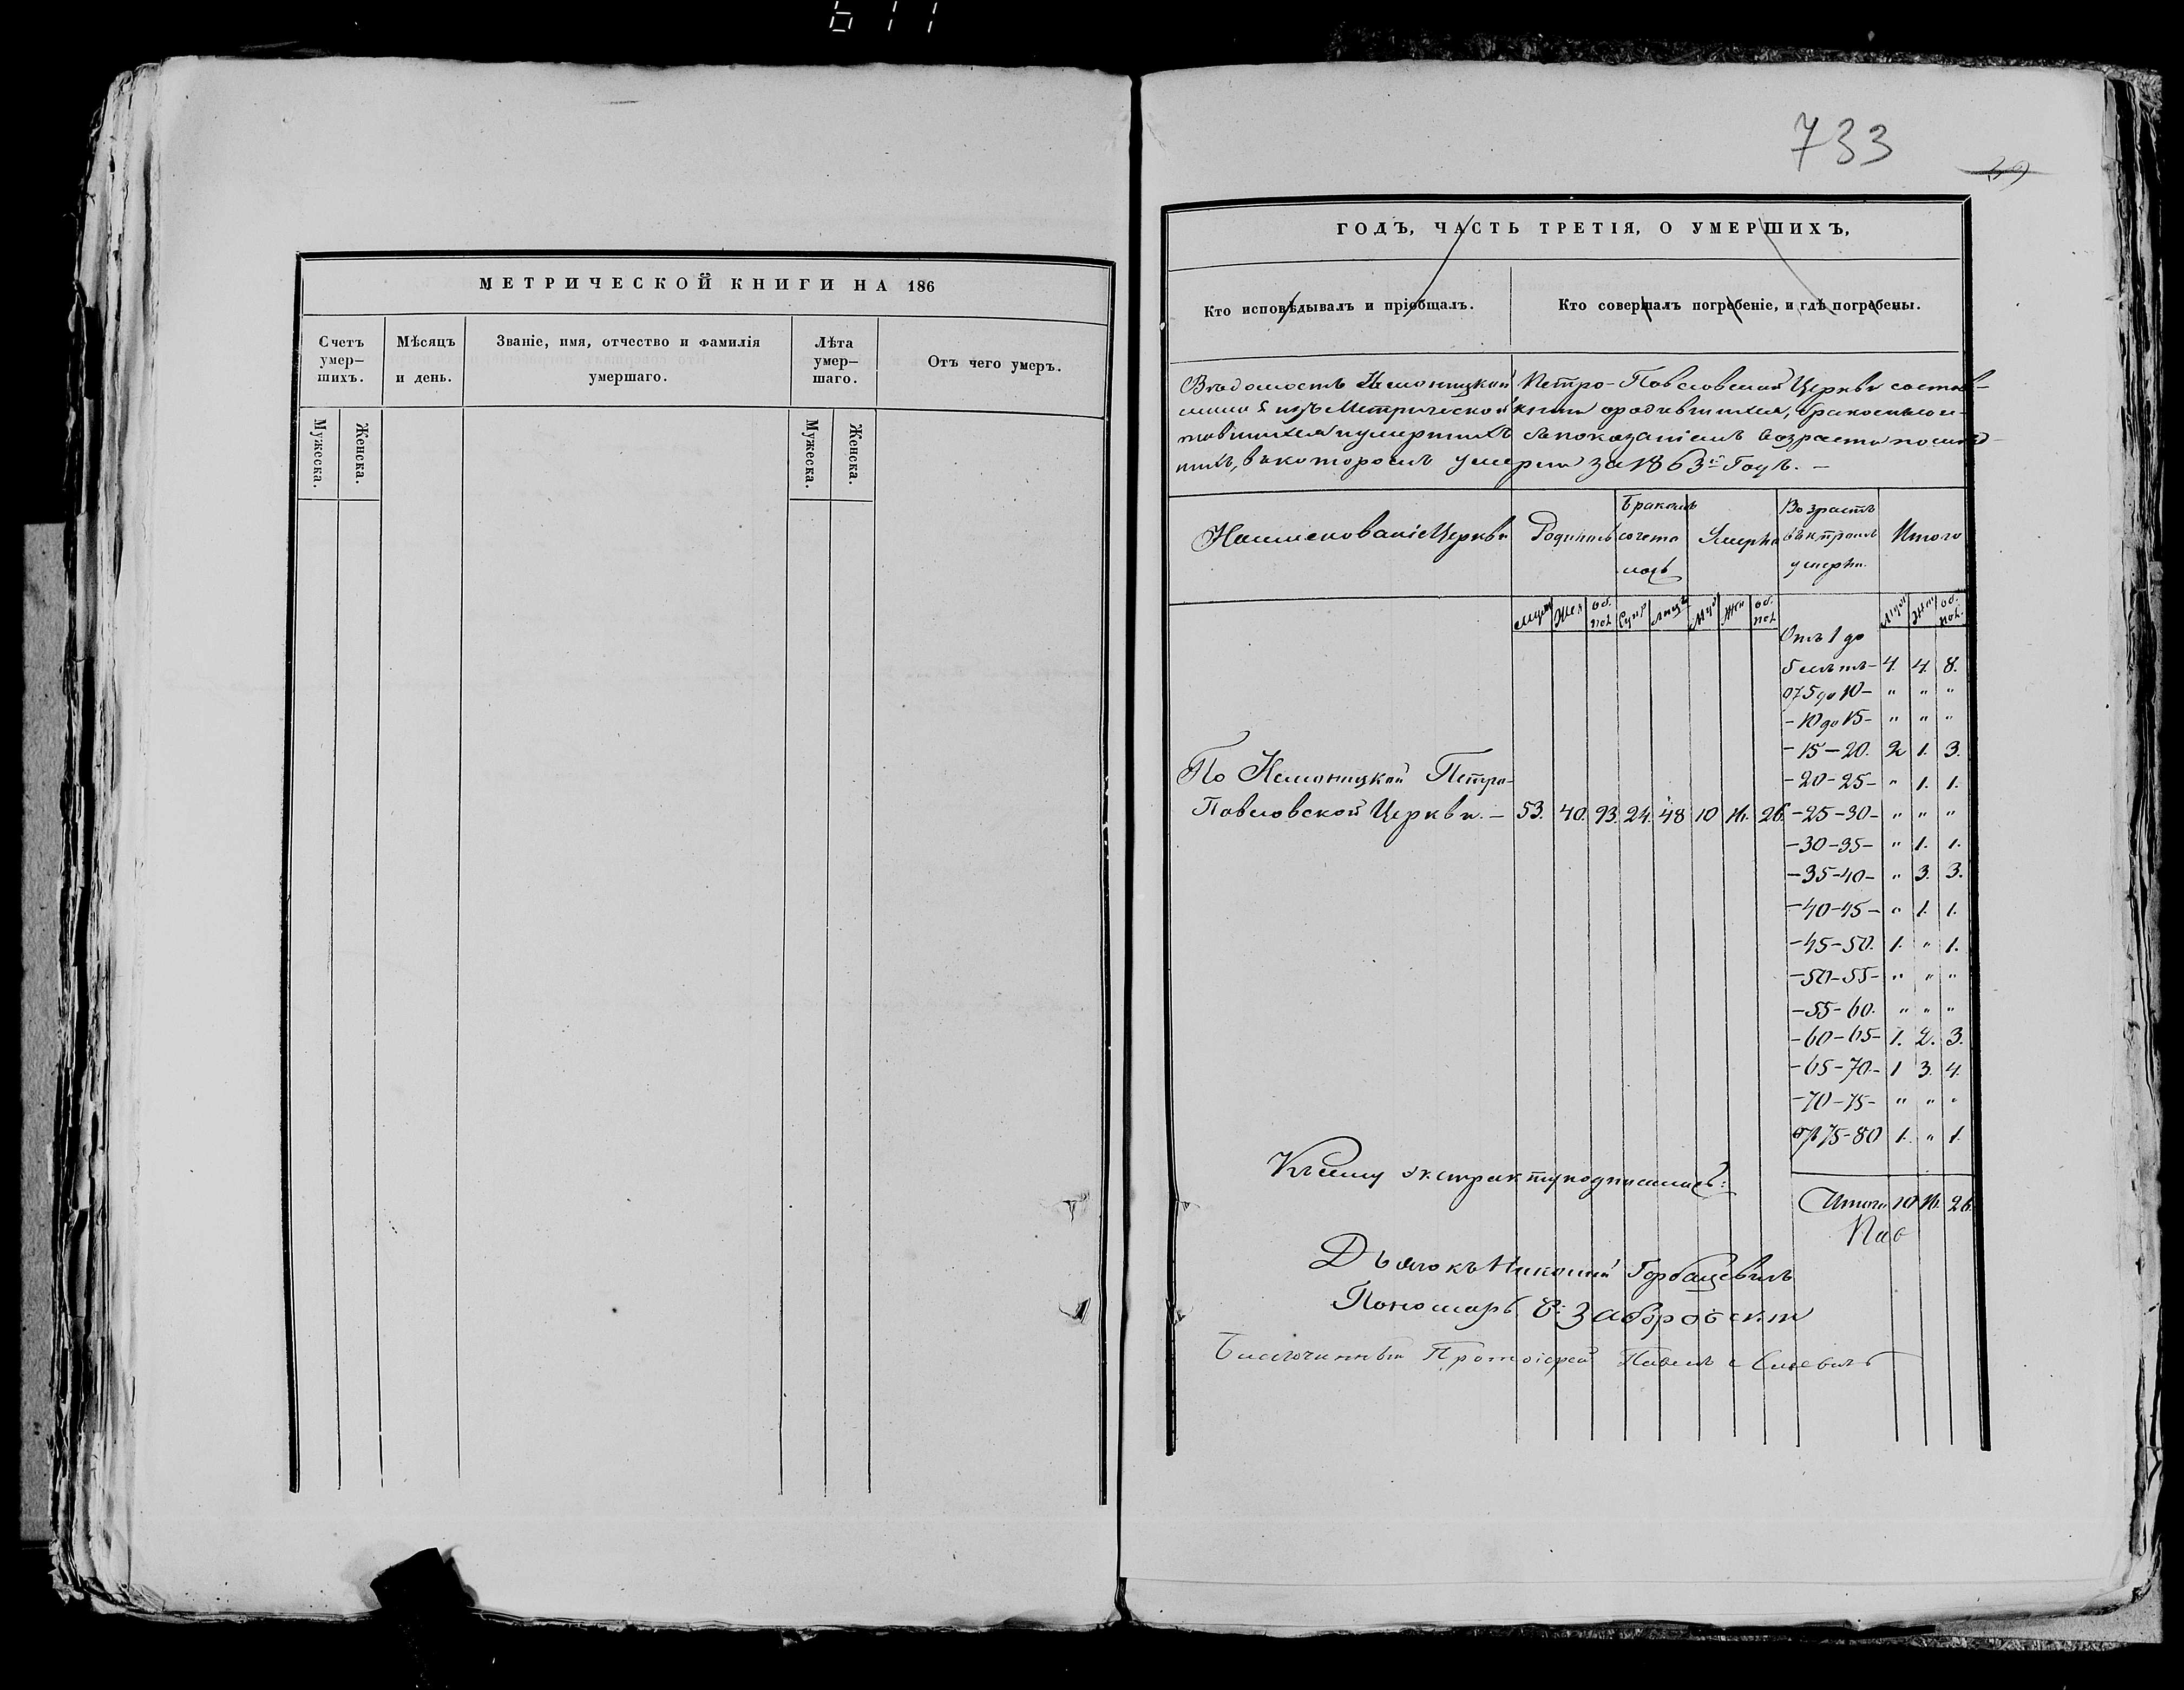 611
МЕТРИЧЕСКОЙ КНИГИ НА 186
Счетъ умер-шихъ.
Мѣсяцъ и день.
Званіе, имя, отчество и фамилія умершаго.
Лѣта умер-шаго.
Отъ чего умеръ.
Мужеска.
Женска.
Мужеска.
Женска.
733
ГОДЪ, ЧАСТЬ ТРЕТІЯ, О УМЕРШИХЪ,
Кто исповѣдывалъ и пріобщалъ.
Кто совершалъ погребеніе, и гдѣ погребены.
Вѣдомость Немоницкой Петро-Павловской Церкви состав-
изъ Метрической книги о родившихся, бракосоче-
тавшихся и умершихъ съ показаніемъ возраста
въ которомъ умерли за 1863й Годъ. –
Наименованіе Церкви
Родилось
Бракомъ сочета лось
Умерло
Возрастъ въ ктромъ умерли.
Итого
Муж Жен об. пол Суп Лицъ Муж Жен об. пол Муж Жен об. пол.
Отъ 1 до
5 лѣтъ – 4. 4. 8.
от 5 до 10 – " " "
– 10 до 15 – " " "
– 15 – 20. 2 1. 3.
По Немоницкой Петро-
– 20 – 25 – " 1. 1.
Павловской Церкви. – 53. 40. 93. 24. 48 10 16. 26. – 25 – 30 – " " "
– 30 – 35 – " 1. 1.
– 35 – 40 – " 3. 3.
– 40 – 45 – " 1. 1.
– 45 – 50. 1. " 1.
– 50 – 55 – " " "
– 55 – 60. " " "
– 60 – 65 – 1. 2. 3.
– 65 – 70 – 1 3. 4.
– 70 – 75 – " " "
отъ 75 – 80 1. " 1.
Къ сему экстракту подписались:
Итого 10 16. 26.
Дьячокъ Николай Горбацевичъ
Пономарь Забѣровскій
Благочинный Протоіерей Павелъ